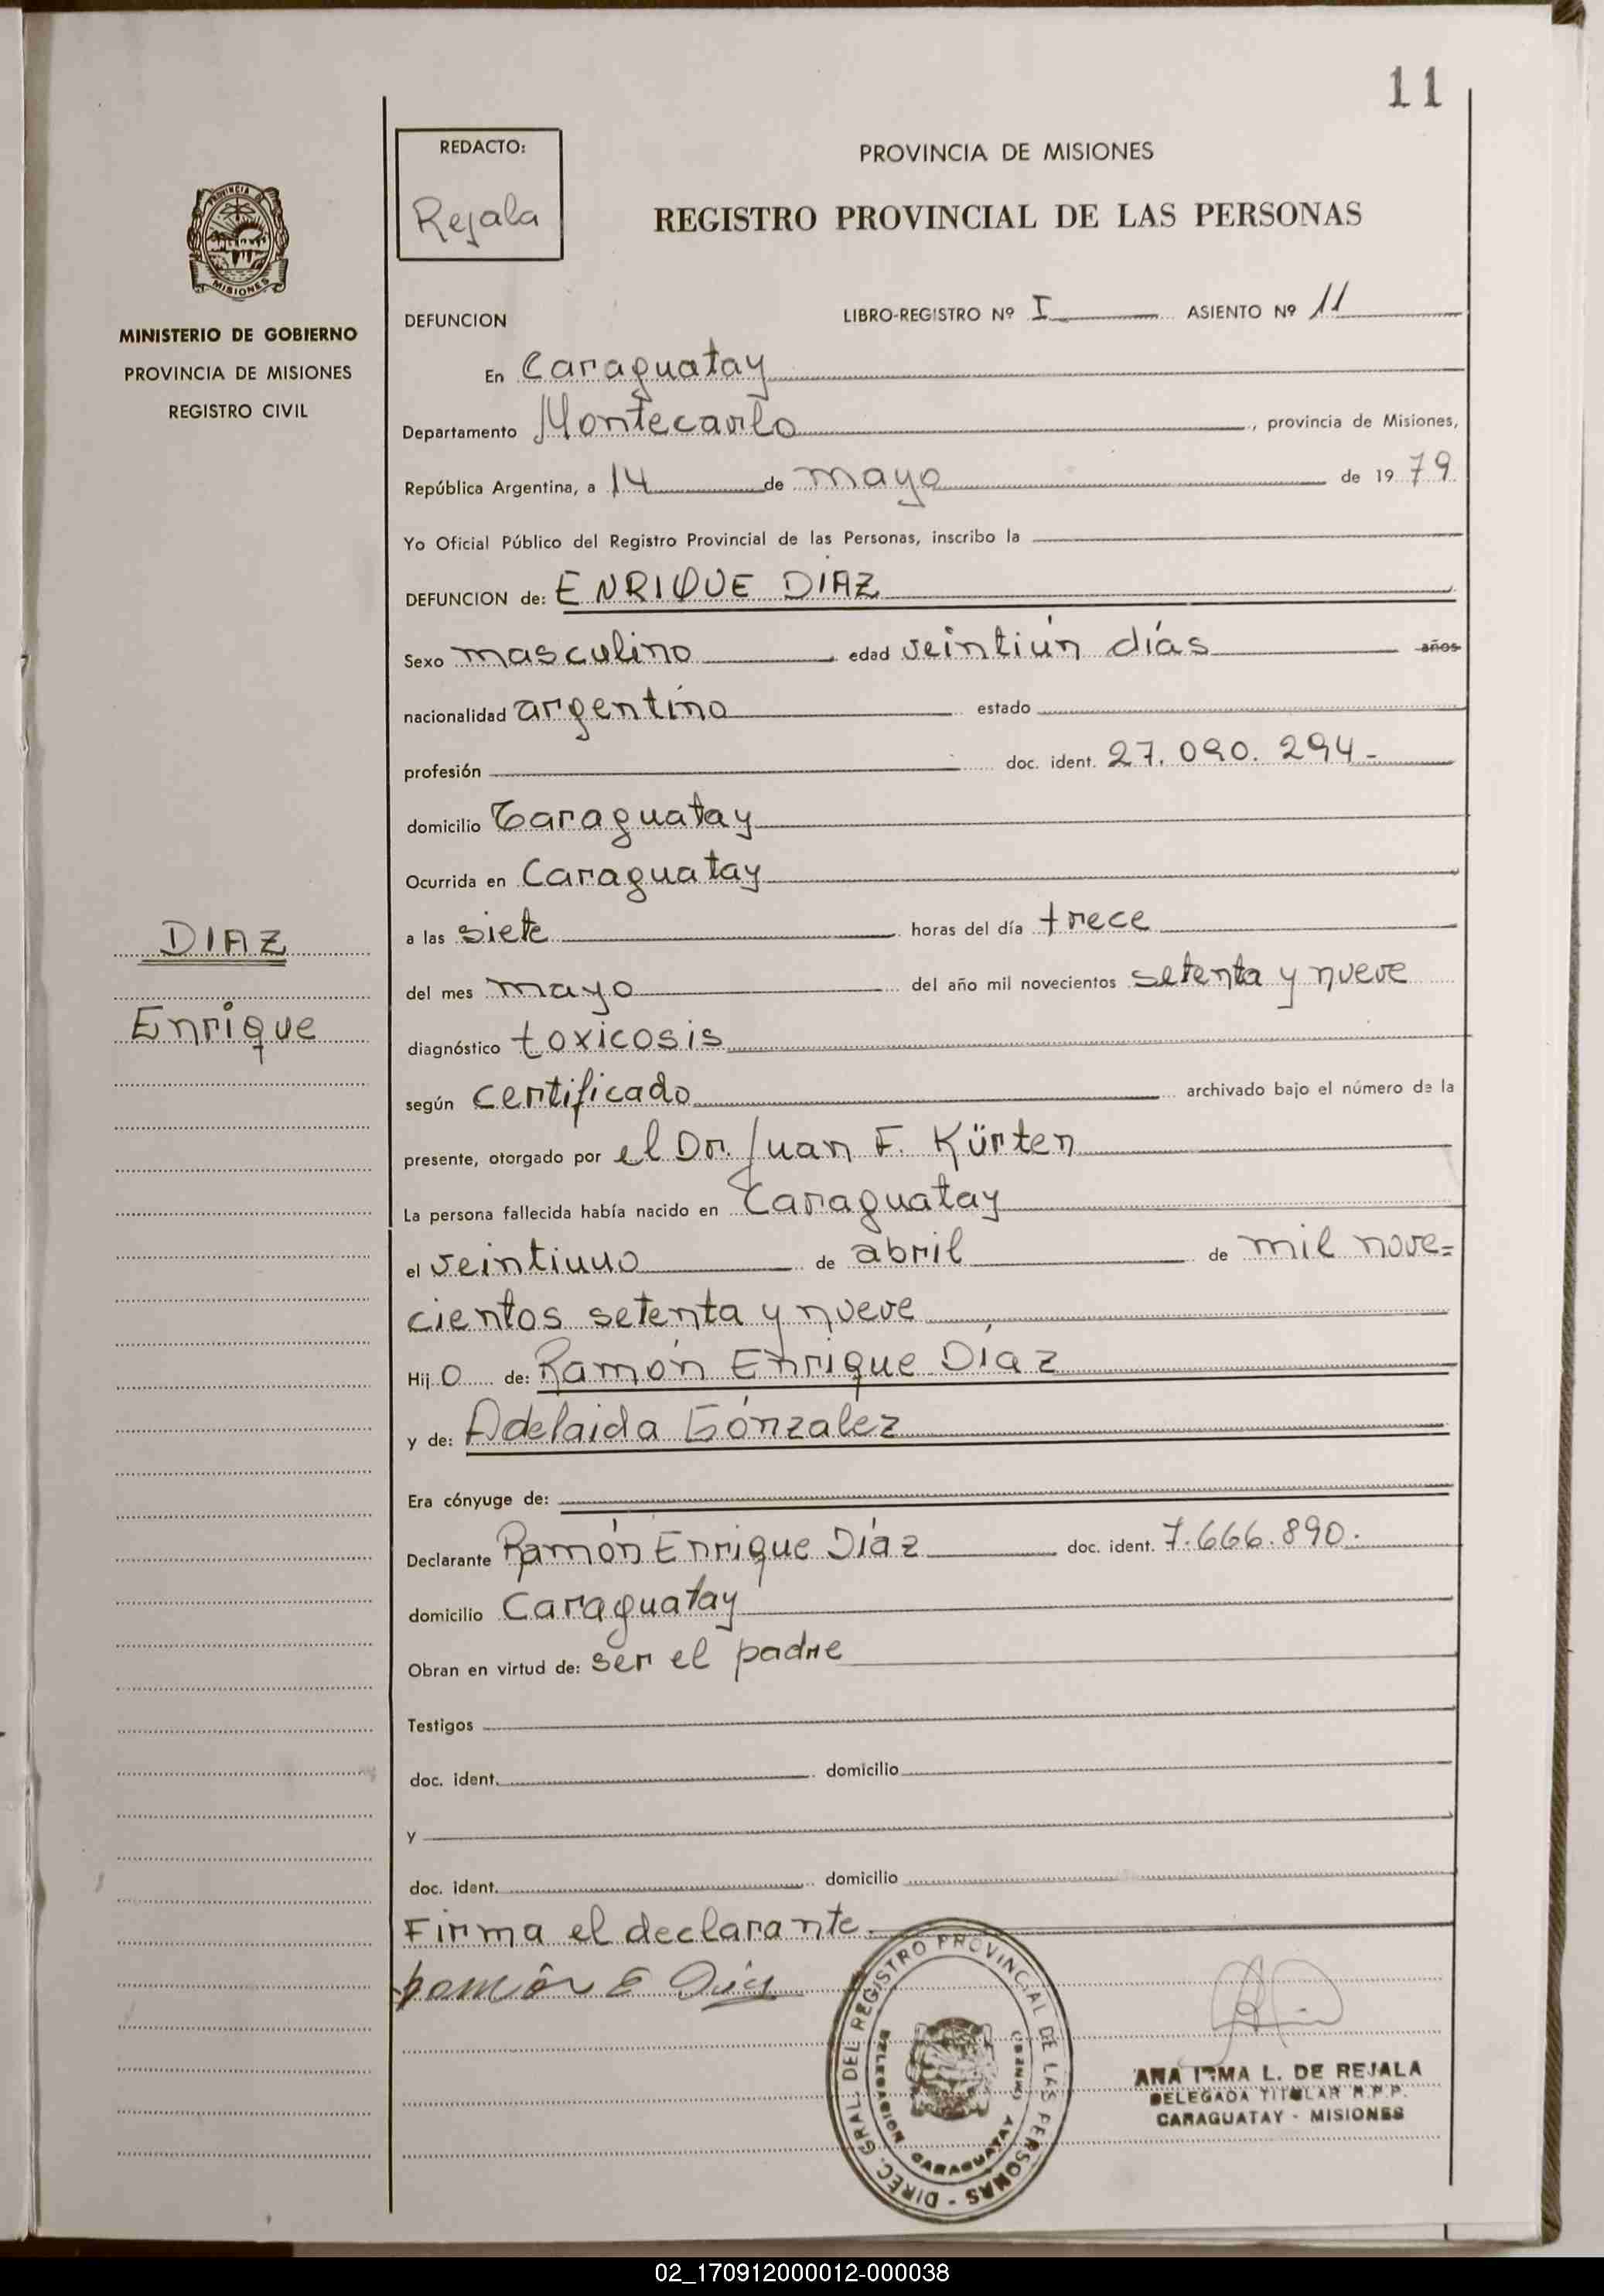 11
REDACTO:
Rejala
PROVINCIA DE MISIONES
REGISTRO PROVINCIAL DE LAS PERSONAS
PROVINCIA DE
MISIONES
MINISTERIO DE GOBIERNO
PROVINCIA DE MISIONES
REGISTRO CIVIL
DEFUNCION LIBRO-REGISTRO Nº I ASIENTO Nº 11
En Caraguatay
Departamento Montecarlo, provincia de Misiones,
República Argentina, a 14 de mayo de 1979
Yo Oficial Público del Registro Provincial de las Personas, inscribo la
DEFUNCION de: ENRIQUE DIAZ
Sexo masculino edad veintiún días años
nacionalidad argentino estado
profesión doc. ident. 27.090.294-
domicilio Caraguatay
Ocurrida en Caraguatay
DIAZ
Enrique
a las siete horas del día trece
del mes mayo del año mil novecientos setenta y nueve
diagnóstico toxicosis
según certificado archivado bajo el número de la
presente, otorgado por el Dr. Juan F. Kürten
La persona fallecida había nacido en Caraguatay
el veintiuno de abril de mil nove=
cientos setenta y nueve
Hijo de: Ramón Enrique Díaz
y de: Adelaida Gónzalez
Era cónyuge de:
Declarante Ramón Enrique Díaz doc. ident. 7.666.890.
domicilio Caraguatay
Obran en virtud de: ser el padre
Testigos
doc. ident. domicilio
y
doc. ident. domicilio
Firma el declarante.
Ramón E Díaz
DIREC. GRAL. DEL REGISTRO PROVINCIAL DE LAS PERSONAS -
DELEGACION CARAGUATAY
ANA IRMA L. DE REJALA
DELEGADA TITULAR R.P.P.
CARAGUATAY - MISIONES
02_170912000012-000038